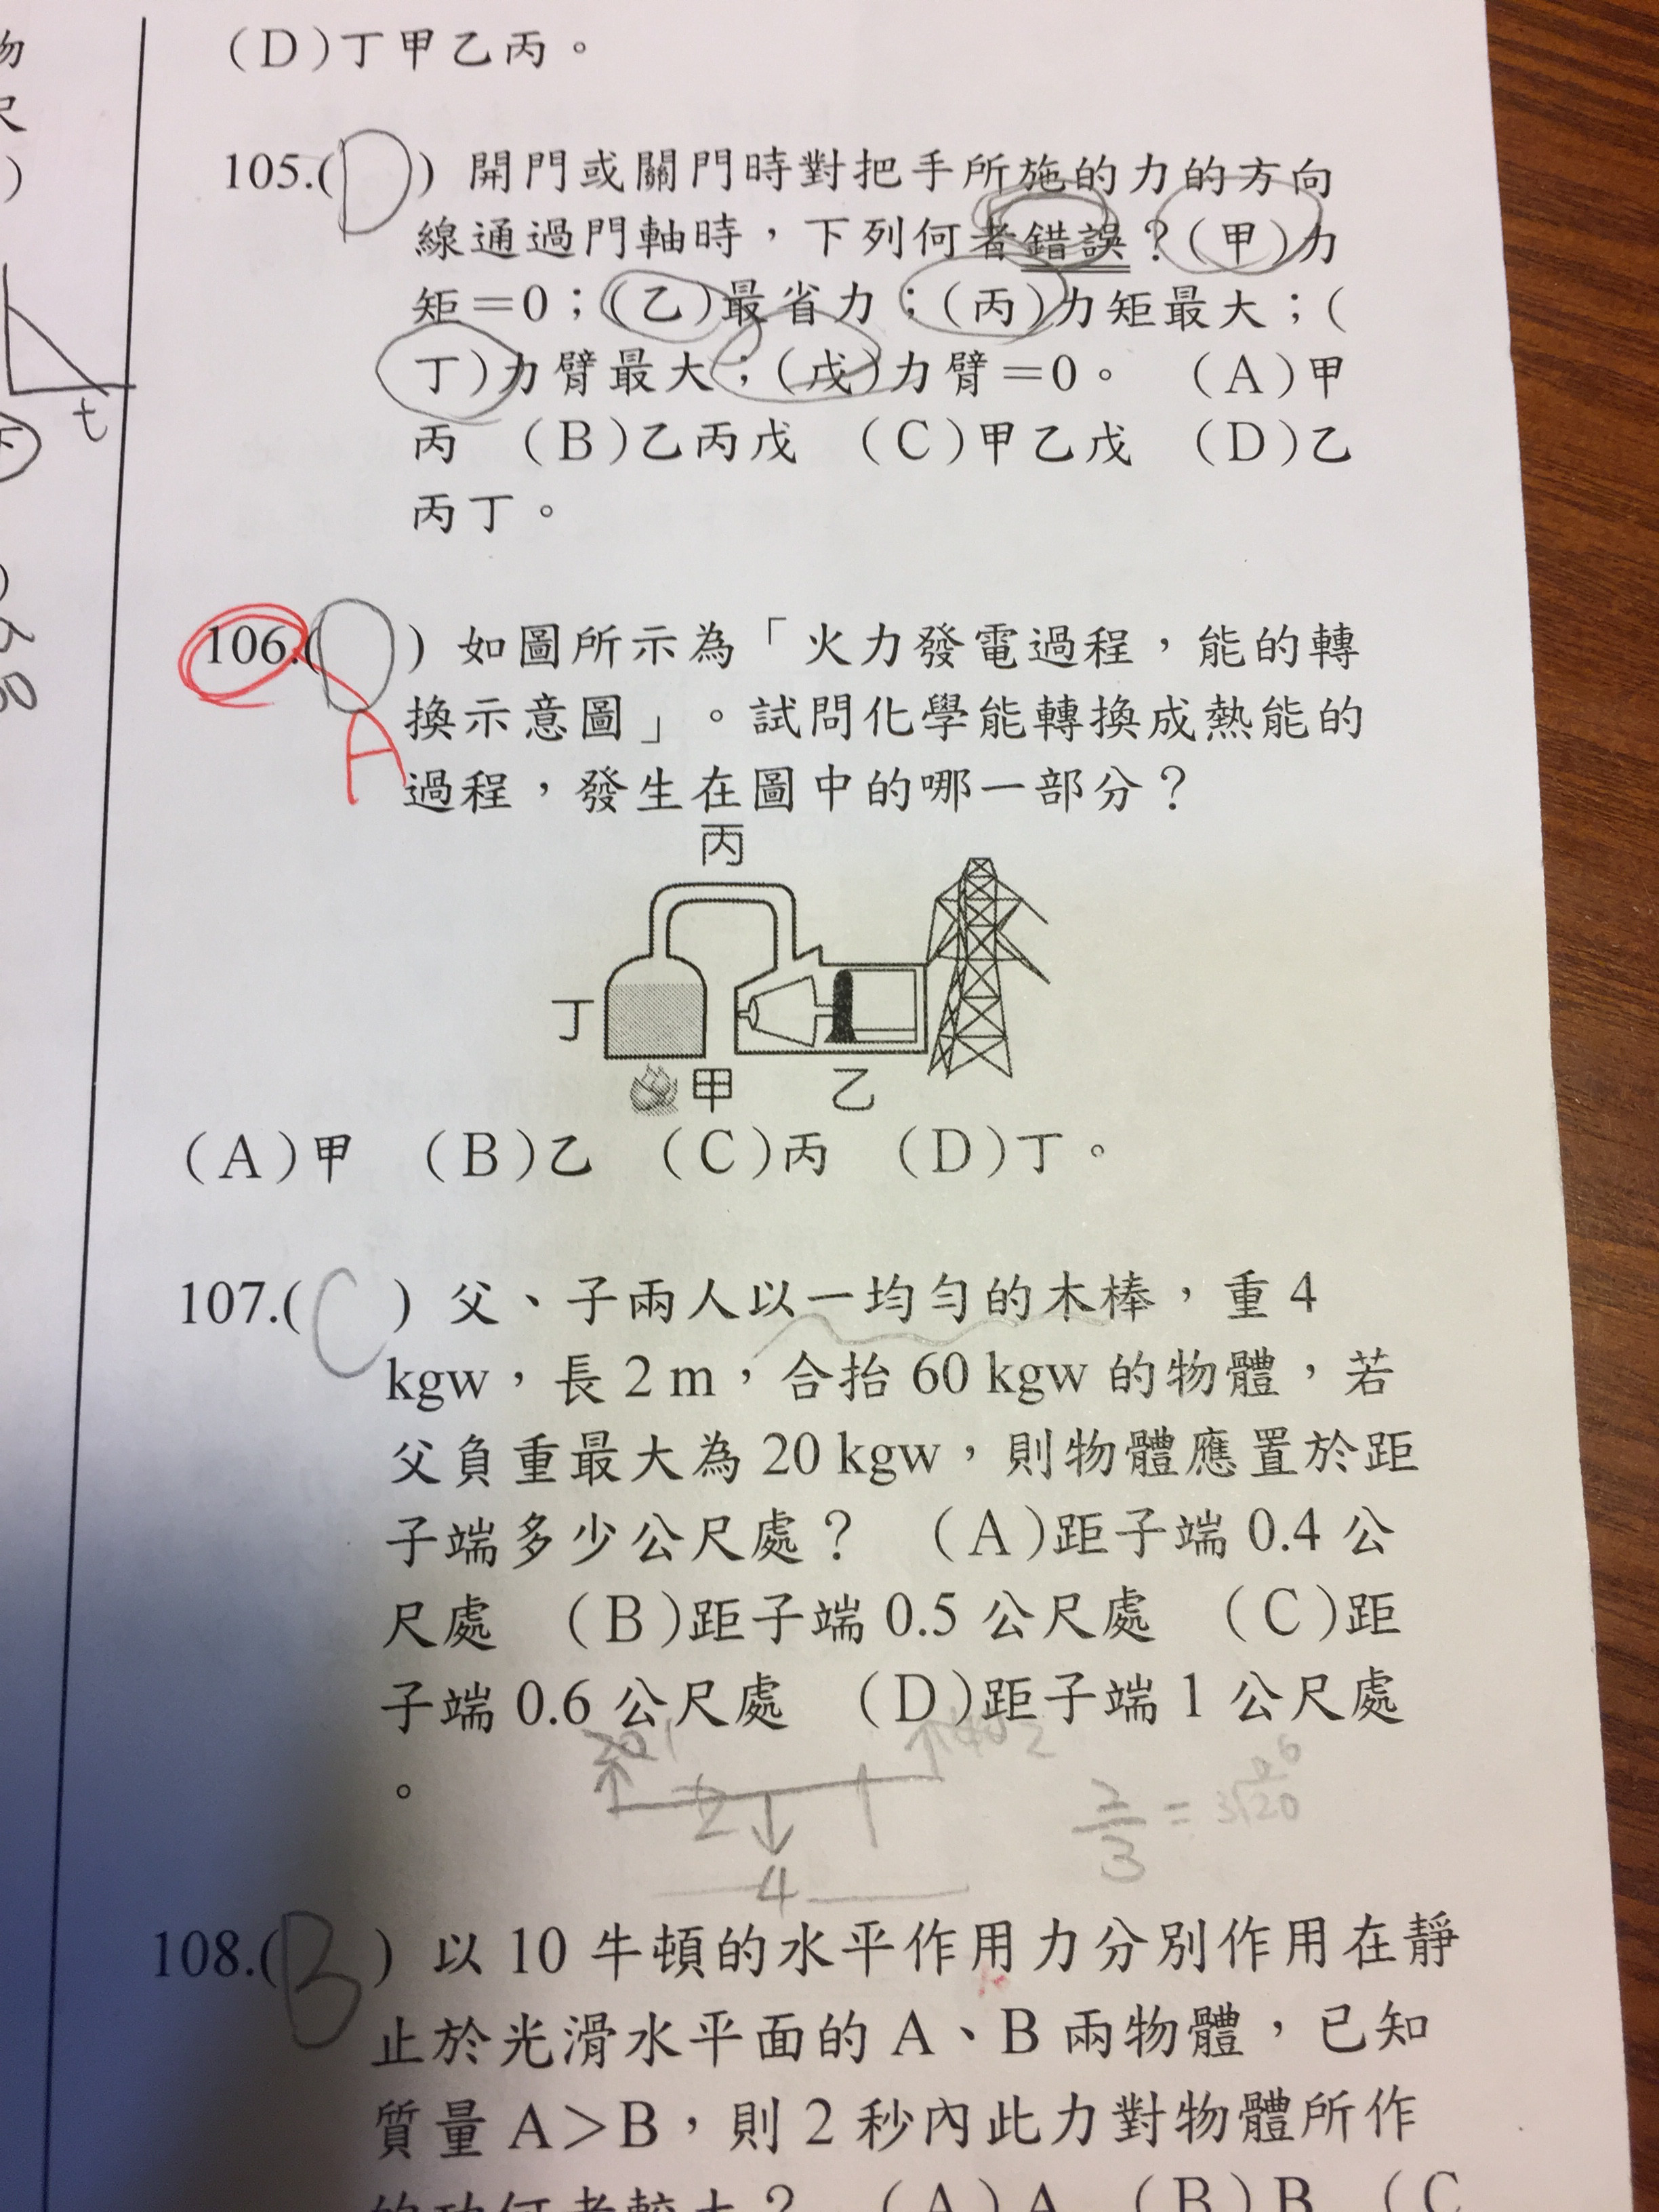 (D)丁甲乙丙。
物
尺
)
t
105.( D ) 開門或關門時對把手所施的力的方向
線通過門軸時，下列何者錯誤？(甲)力
矩＝0；(乙)最省力；(丙)力矩最大；(
丁)力臂最大；(戊)力臂＝0。 (A)甲
丙 (B)乙丙戊 (C)甲乙戊 (D)乙
丙丁。
106.( D ) 如圖所示為「火力發電過程，能的轉
A
換示意圖」。試問化學能轉換成熱能的
過程，發生在圖中的哪一部分？
丙
丁
甲 乙
(A)甲 (B)乙 (C)丙 (D)丁。
107.( C ) 父、子兩人以一均勻的木棒，重 4
kgw，長 2 m，合抬 60 kgw 的物體，若
父負重最大為 20 kgw，則物體應置於距
子端多少公尺處？ (A)距子端 0.4 公
尺處 (B)距子端 0.5 公尺處 (C)距
子端 0.6 公尺處 (D)距子端 1 公尺處
。
20 1
2 1
4
2/3 =
108.( B ) 以 10 牛頓的水平作用力分別作用在靜
止於光滑水平面的 A、B 兩物體，已知
質量 A＞B，則 2 秒內此力對物體所作
的功何者較大？ (A)A (B)B (C